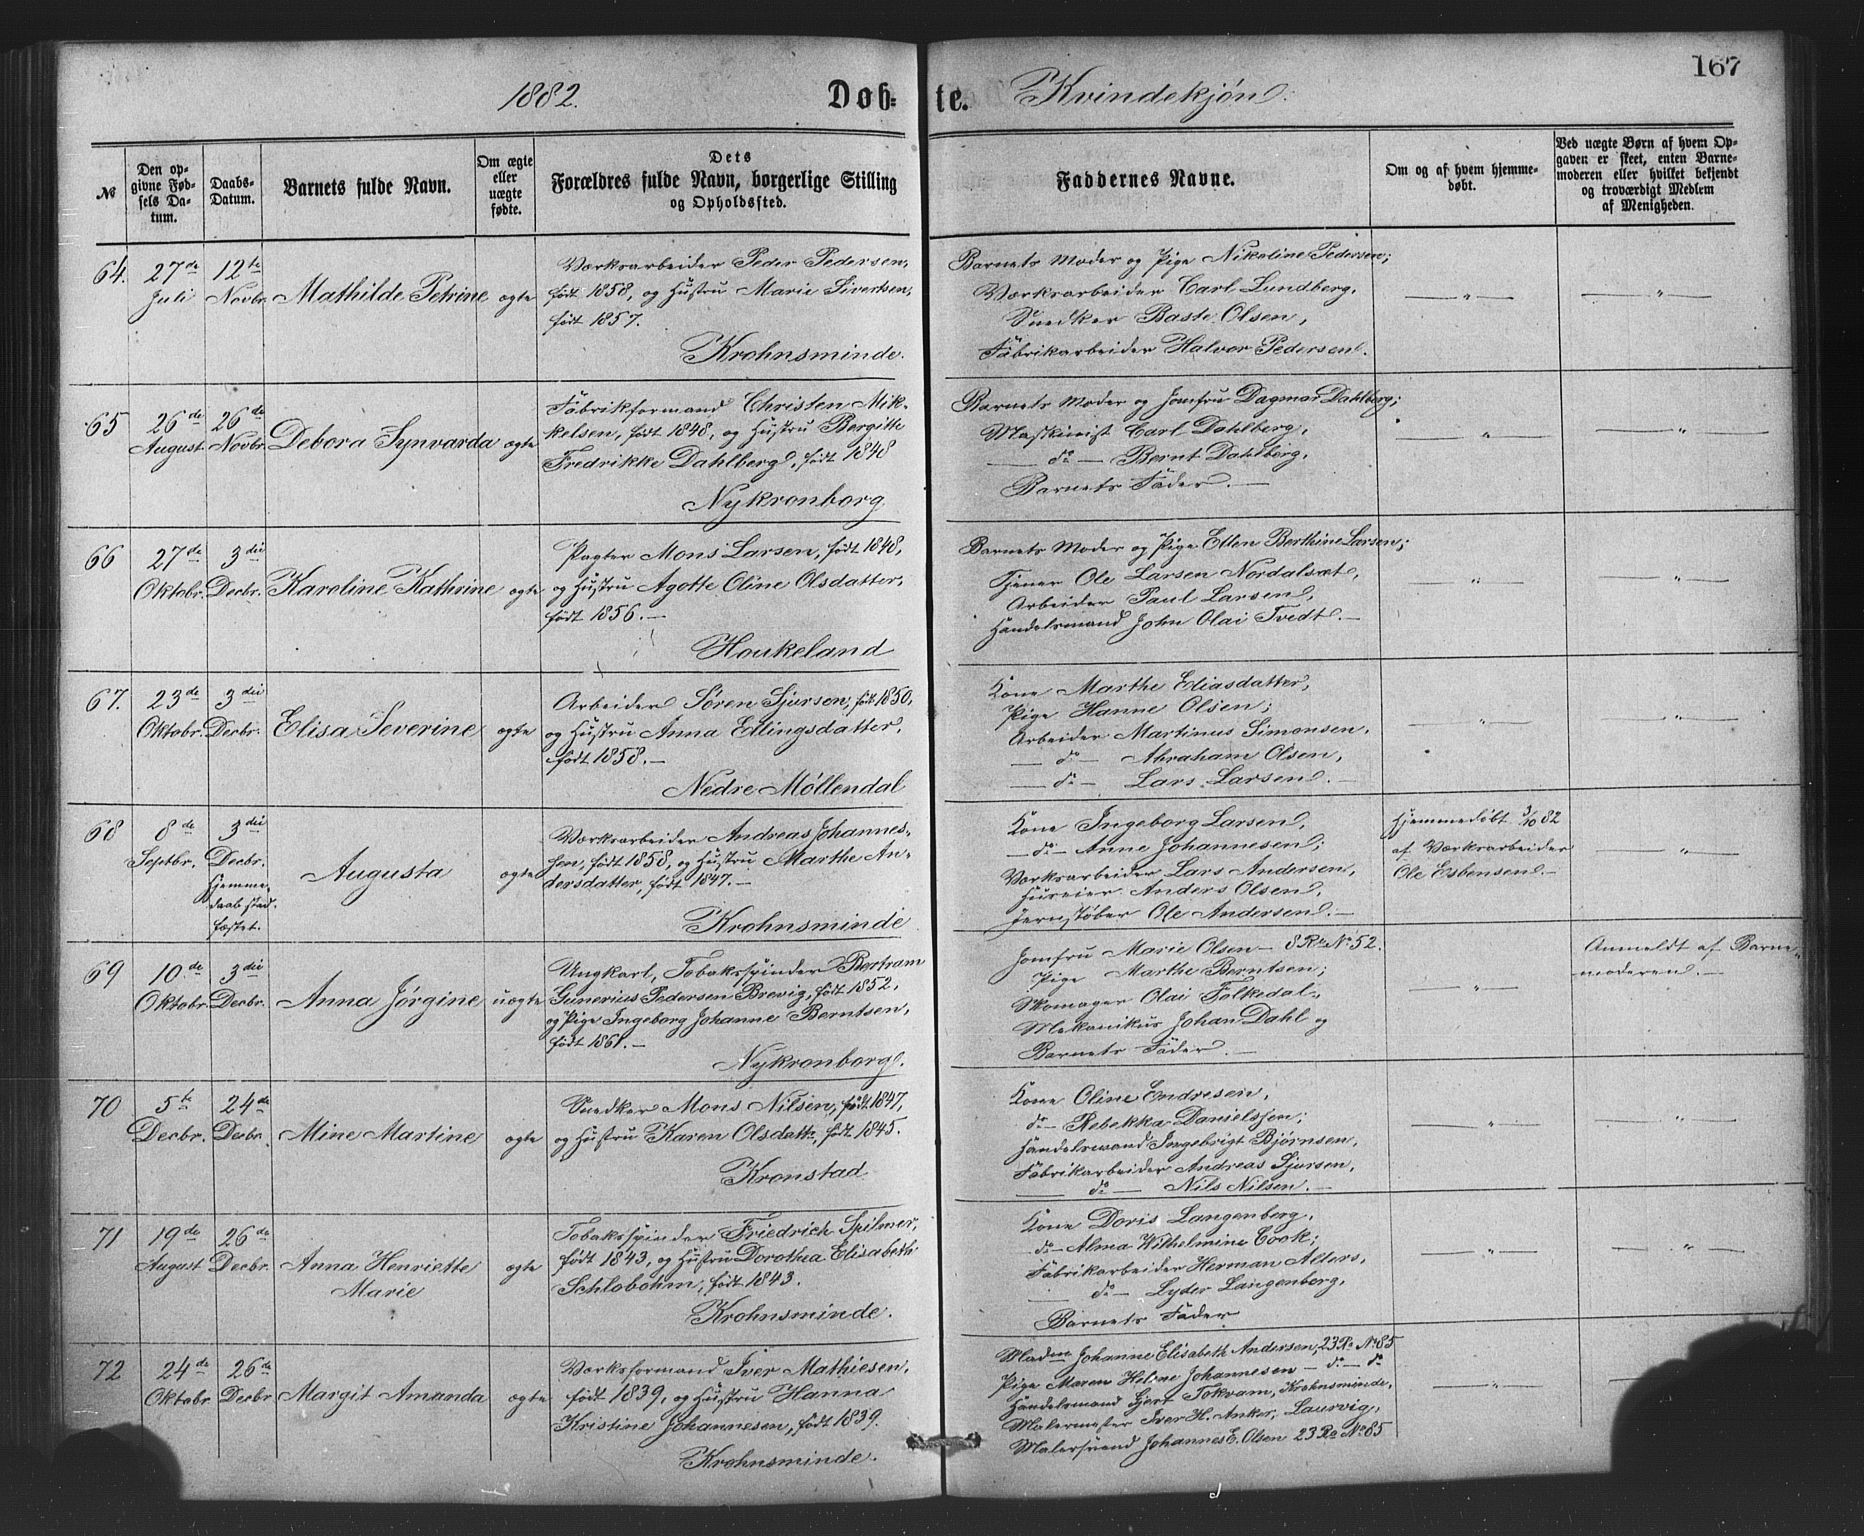 167
1882.
Døb-te.
Kvindekjøn.
№
Den opgivne Fødsels Datum.
Daabs-Datum.
Barnets fulde Navn.
Om ægte eller uægte fødte.
Dets Forældres fulde Navn, borgerlige Stilling og Opholdssted.
Faddernes Navne.
Om og af hvem hjemmedøbt.
Ved uægte Børn af hvem Opgaven er skeet, enten Barnemoderen eller hvilket bekjendt og troværdigt Medlem af Menigheden.
64. 27de Juli
12te Novbr.
Mathilde Petrine
ægte
Værksarbeider Peder Pedersen,
født 1858, og Hustru Marie Sivertsen,
født 1857.
Krohnsminde.
Barnets Moder og Pige Nikoline Pedersen;
Værksarbeider Carl Lundberg,
Snedker Baste Olsen,
Fabrikarbeider Halvor Pedersen.
65 26de August
26de Novbr.
Debora Synvarda
ægte
Fabrikformand Christen Mik-
kelsen, født 1848, og Hustru Bergitte
Fredrikke Dahlberg, født 1848
Nykronborg
Barnets Moder og Jomfru Dagmar Dahlberg;
Maskinist Carl Dahlberg,
— do — Bernt Dahlberg,
Barnets Fader. —
66 27de Oktobr.
3die Decbr.
Karoline Kathrine
ægte
Pagter Mons Larsen, født 1848,
og Hustru Agotte Oline Olsdatter,
født 1856. —
Houkeland
Barnets Moder og Pige Ellen Berthine Larsen;
Tjener Ole Larsen Nordalsæt,
Arbeider Paul Larsen,
Handelsmand John Olai Tvedt. —
67. 23de Oktobr.
3die Decbr.
Elisa Severine
ægte
Arbeider Søren Sjursen, født 1850,
og Hustru Anna Ellingsdatter,
født 1858. —
Nedre Møllendal
Kone Marthe Eliasdatter,
Pige Hanne Olsen;
Arbeider Martinus Simonsen,
— do — Abraham Olsen,
— do — Lars Larsen. —
68 8de Septbr.
3die Decbr.
Hjemme-
daab stad-
fæstet.
Augusta
ægte
Værksarbeider Andreas Johannes-
sen, født 1858, og Hustru Marthe An-
dersdatter, født 1847. —
Krohnsminde
Kone Ingeborg Larsen,
— do — Anne Johannesen;
Værksarbeider Lars Andersen,
Huseier Anders Olsen,
Jernstøber Ole Andersen. —
Hjemmedøbt 3/10 82
af Værksarbeider
Ole Esbensen. —
69 10de Oktobr.
3die Decbr.
Anna Jørgine
uægte
Ungkarl, Tobaksspinder Bertram
Gunerius Pedersen Brevig, født 1852,
og Pige Ingeborg Johanne Berntsen,
født 1861. —
Nykronborg.
Jomfru Marie Olsen — 8 Ro No 52.
Pige Marthe Berntsen;
Skomager Olai Folkedal,
Mekanikus Johan Dahl og
Barnets Fader. —
Anmeldt af Barne-
moderen. —
70 5te Decbr.
24de Decbr.
Mine Martine
ægte
Snedker Mons Nilsen, født 1847,
og Hustru Karen Olsdattr, født 1845.
Kronstad
Kone Oline Endresen,
do — Rebekka Danielssen;
Handelsmand Ingebrigt Bjørnsen,
Fabrikarbeider Andreas Sjursen,
— do — Nils Nilsen. —
71 19de August
26de Decbr.
Anna Henriette
Marie
ægte
Tobaksspinder Friedrich Spilmer,
født 1843, og Hustru Dorothea Elisabeth
Schlobohm, født 1843.
Krohnsminde.
Kone Doris Langenberg,
do — Alma Wilhelmine Cook;
Fabrikarbeider Herman Alters,
— do — Lyder Langenberg,
Barnets Fader
72 24de Oktobr.
26de Decbr.
Margit Amanda
ægte
Værksformand Iver Mathiesen,
født 1839, og Hustru Hanna
Kristine Johannesen, født 1839.
Krohnsminde.
Madm Johanne Elisabeth Andersen, 23 Ro No 85
Pige Maren Helene Johannesen — do — do
Handelsmand Gjert Tokvam, Krohnsminde,
Malermester Iver H. Anker, Laurvig,
Malersvend Johannes E. Olsen 23 Ro No 85